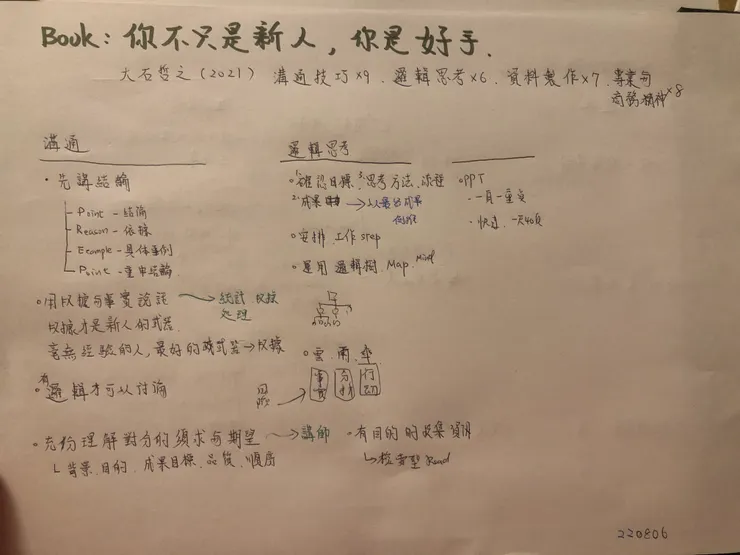 Book: 你不只是新人, 你是好手.
大石哲之 (2021) 溝通技巧×9. 邏輯思考×6. 資料製作×7. 專業與
商務精神×8
溝通
・先講結論
Point - 結論
Reason - 依據
Example - 具体事例
Point - 重申結論
・用數據与事實說話 → 統計 數據
處理
數據才是新人的武器.
毫無經驗的人, 最好的武器→數據
・有邏輯才可以討論
・充份理解對方的須求与期望 → 講師
背景. 目的. 成果目標. 品質. 順序
邏輯思考
1.確認目標. 3.思考方法. 流程
2.成果 → 以最終成果
・安排 工作 step
・運用 邏輯樹. Map. Mind
○雲. 雨. 傘
事實 分析 行動
・有目的 的收集資訊
Read
PPT
・一頁一重點
220806